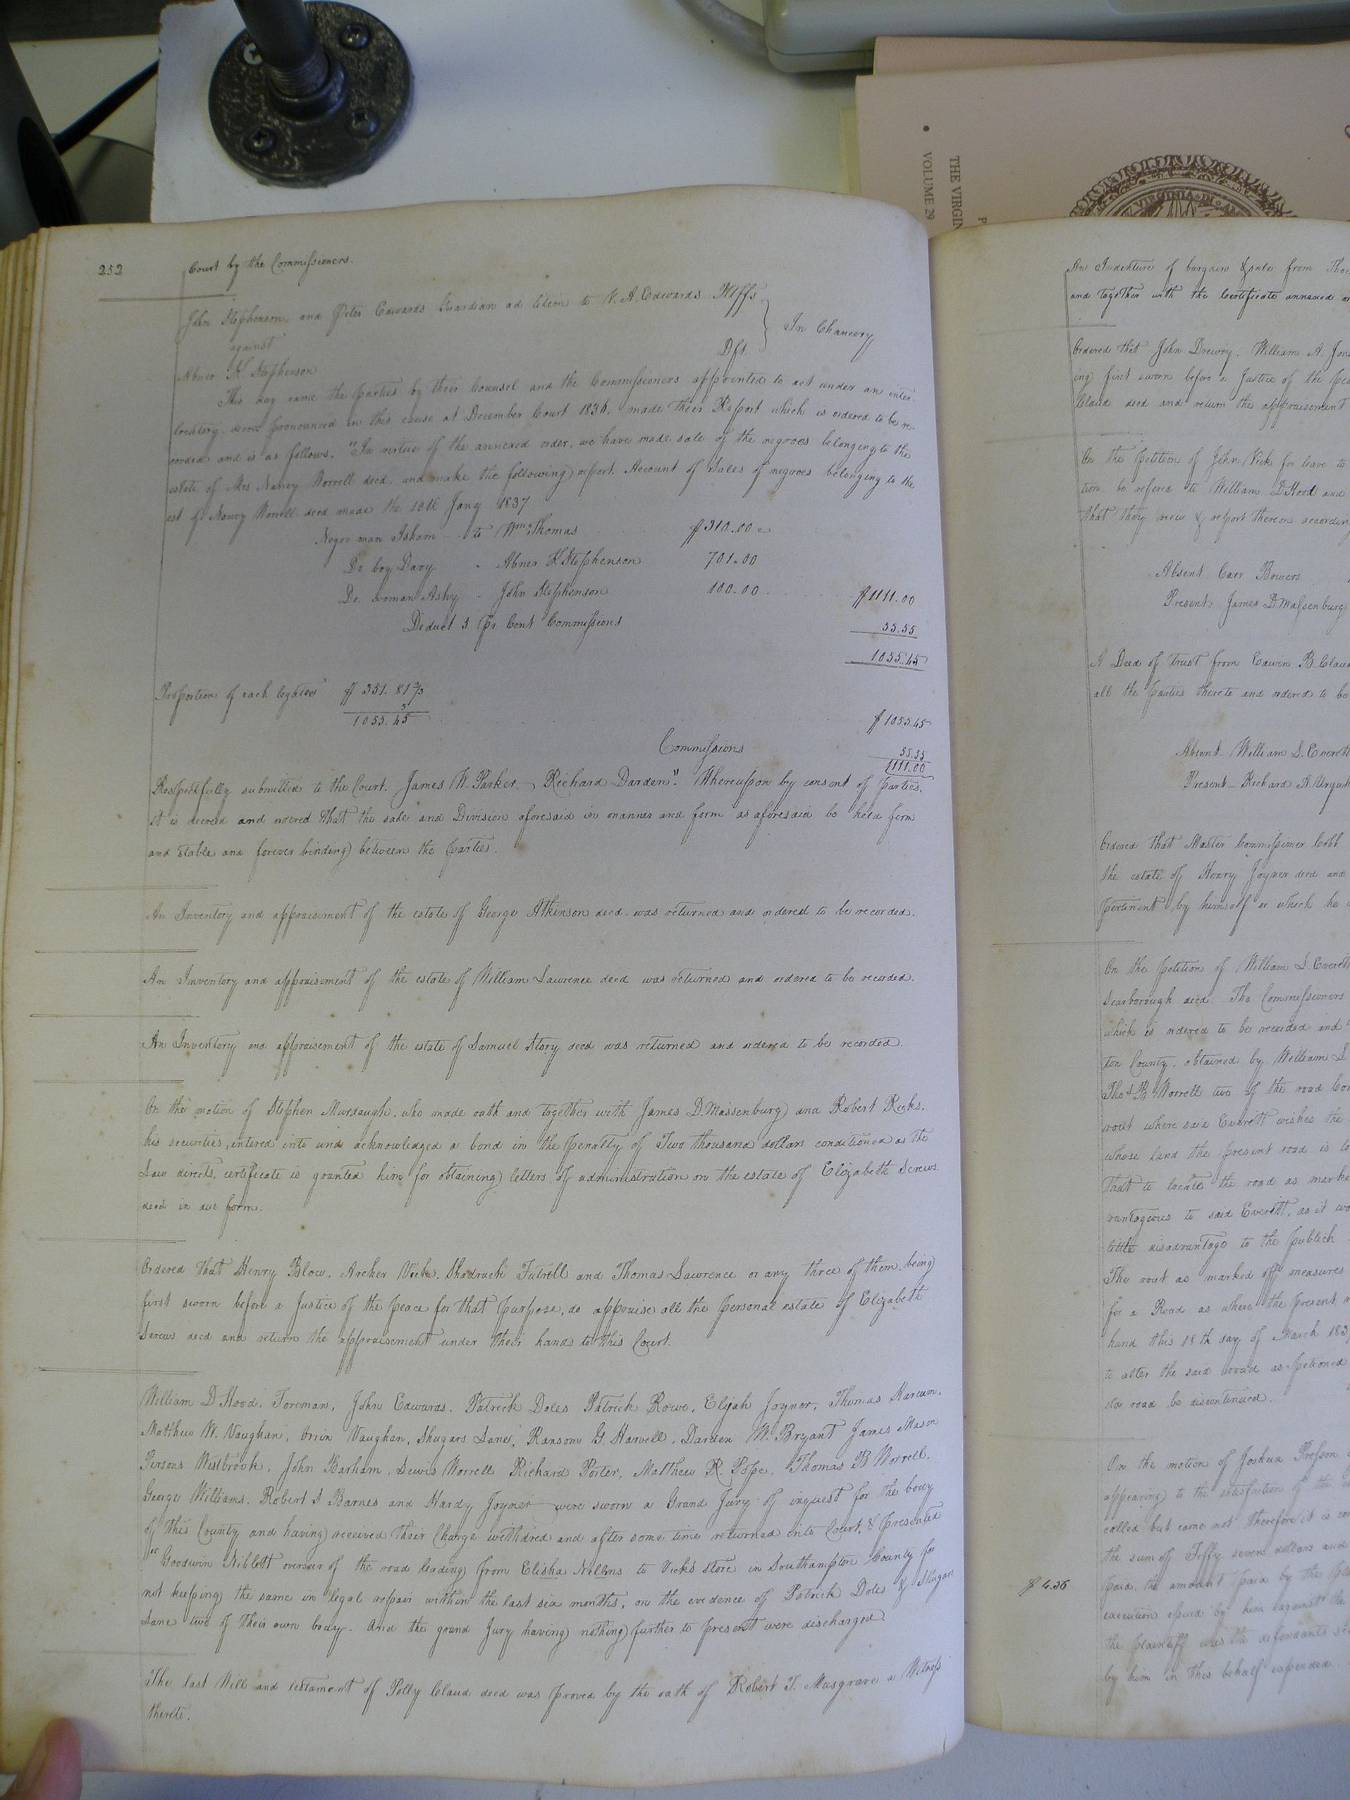 252
Court by the Commissioners.
John Stephenson and Peter Edwards Guardian ad litem to V. A. Edwards Plffs
against
In Chancery
Abner K Stephenson Dft
This day came the Parties by their Counsel and the Commissioners appointed to act under an inter-
locutory decree pronounced in this cause at December Court 1836, made their Report which is ordered to be re-
corded and is as follows, "In virtue of the annexed order, we have made sale of the negroes belonging to the
estate of Mrs Nancy Worrell decd. and make the following report. Account of Sales of negroes belonging to the
est of Nancy Worrell decd made the 18th Jany 1837
Negro man Isham to Wm Thomas $310.00
Do boy Davy - Abner K Stephenson 701.00
Do. woman - John Stephenson 100.00 $1111.00
Deduct 5 Pr Cent Commissions 55.55
1055.45
Proportion of each legatee $351.81⅔
3
1055.45 $1055.45
Commissions 55.55
1111.00
Respectfully submitted to the Court. James W. Parker, Richard Darden". Whereupon by consent of parties,
it is decreed and ordered that the sale and Division aforesaid in manner and form as aforesaid be held firm
and stable and forever binding between the parties.
An Inventory and appraisement of the estate of George Atkinson decd. was returned and ordered to be recorded.
An Inventory and appraisement of the estate of William Lawrence decd was returned and ordered to be recorded.
An Inventory and appraisement of the estate of Samuel Story decd was returned and ordered to be recorded.
On the motion of Stephen Murdaugh, who made oath and together with James D. Massenburg and Robert Ricks,
his securities, entered into and acknowledged a bond in the penalty of Two thousand dollars conditioned as the
Law directs, certificate is granted him for obtaining letters of administration on the estate of Elizabeth Screws
decd in due form.
Ordered that Henry Blow, Archer Vick, Shadrach Futrell and Thomas Lawrence or any three of them being
first sworn before a Justice of the peace for that purpose, do appraise all the personal estate of Elizabeth
Screws decd and return the appraisement under their hands to this Court.
William D Hood, Foreman, John Edwards, Patrick Doles Patrick Rowe, Elijah Joyner, Thomas Harcum,
Matthew W. Vaughan, Orrin Vaughan, Shugars Lane, Ransom G. Harvell, Darden W. Bryant James Mason
Persons Westbrook, John Barham, Lewis Worrell Richard Porter, Matthew R. Pope, Thomas B Worrell,
George Williams, Robert S Barnes and Hardy Joyner were sworn a Grand Jury of inquest for the body
of this County and having received their Charge withdrew and after some time returned into Court, & presented
"Goodwin Niblett overseer of the road leading from Elisha to Vicks store in Southampton County for
not keeping the same in legal repair within the last six months, on the evidence of Patrick Doles & Shugars
Lane two of their own body. And the grand Jury having nothing further to present were discharged
The last Will and testament of Polly Claud decd was proved by the oath of Robert T. Musgrave a Witness
thereto.
THE VIRGIN
VOLUME 29
VIRGINIA
An Indenture of bargain & sale from
and together with the Certificate annexed
Ordered that John Drewry, William A.
ing first sworn before a Justice of the
Claud decd and return the appraisement
On the petition of John Vicks for leave to
tion be refered to William D Hood and
that they view & report thereon
Absent Carr Bowers
Present James D. Massenburg
A Deed of trust from Edwin B. Claud
all the parties thereto and ordered to be
Absent William S. Everett
Present Richard A Urquhart
Ordered that Master Commissioner Cobb
the estate of Henry Joyner decd and
pertinent by himself or which he
On the petition of William S. Everett
Scarborough decd. The Commissioners
which is ordered to be recorded and
ton County, obtained by William S
Thos B Worrell two of the road
rout where said Everett wishes the
whose land the present road is to
that to locate the road as marked
vantageous to said Everett, as it
little disadvantage to the publick
The rout as marked off measures
for a Road as where the present
hand this 18th day of March 183
to alter the said road as petioned
road be discontinued.
On the motion of Joshua Presson
appearing to the satisfaction of the
called but came not therefore it is
the sum of Fifty seven dollars and
$4.36
paid, the amount paid by the
execution issued by him against the
the plaintiff the defendants
by him in this behalf expended.